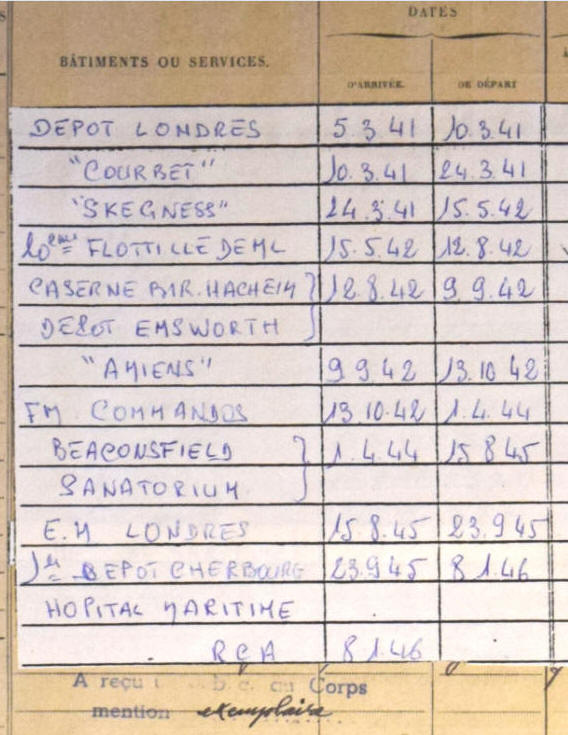 DATES
BÂTIMENTS OU SERVICES.
D'ARRIVÉE. DE DÉPART
DEPOT LONDRES 5.3.41 10.3.41
"COURBET" 10.3.41 24.3.41
"SKEGNESS" 24.3.41 15.5.42
20ème FLOTTILLE DE ML 15.5.42 12.8.42
CASERNE BIR.HACHEIM 12.8.42 9.9.42
DEPOT EMSWORTH
"AMIENS" 9 9 42 13.10 42
FM COMMANDOS 13.10.42 1.4.44
BEACONSFIELD 1.4.44 15 8 45
SANATORIUM
E.M LONDRES 15.8.45 23.9 45
1er DEPOT CHERBOURG 23.9 45 8 1.46
HOPITAL MARITIME
RCA 8 1.46
A reçu Corps
mention exemplaire